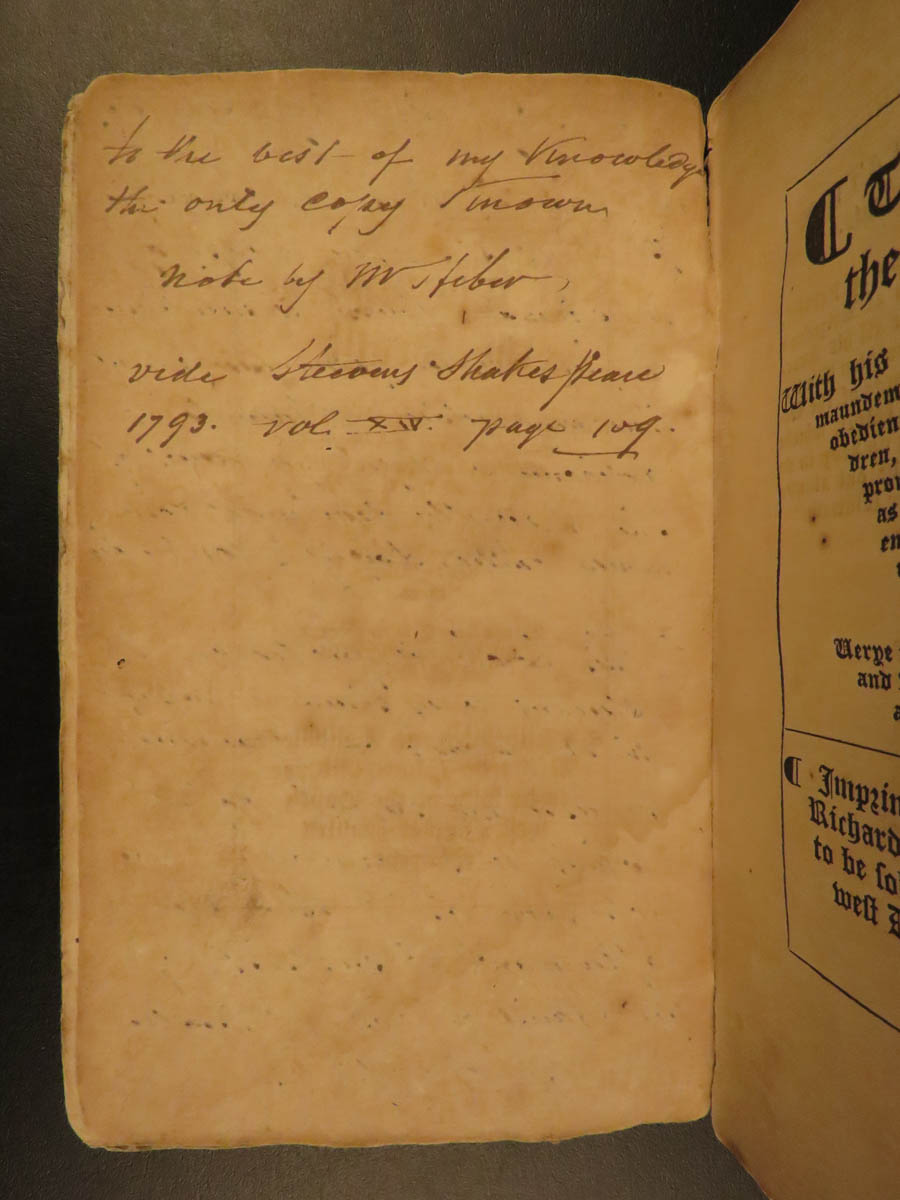 to the best of my Knowledge
the only copy Known
note by Mr Heber,
vide Steevens Shakespeare
1793. vol. XIV. page 109.
¶ T
the
With his
maundem
obedien
dren,
prov
as
en
t
Uerye
and
a
¶ Imprin
Richard
to be sol
west